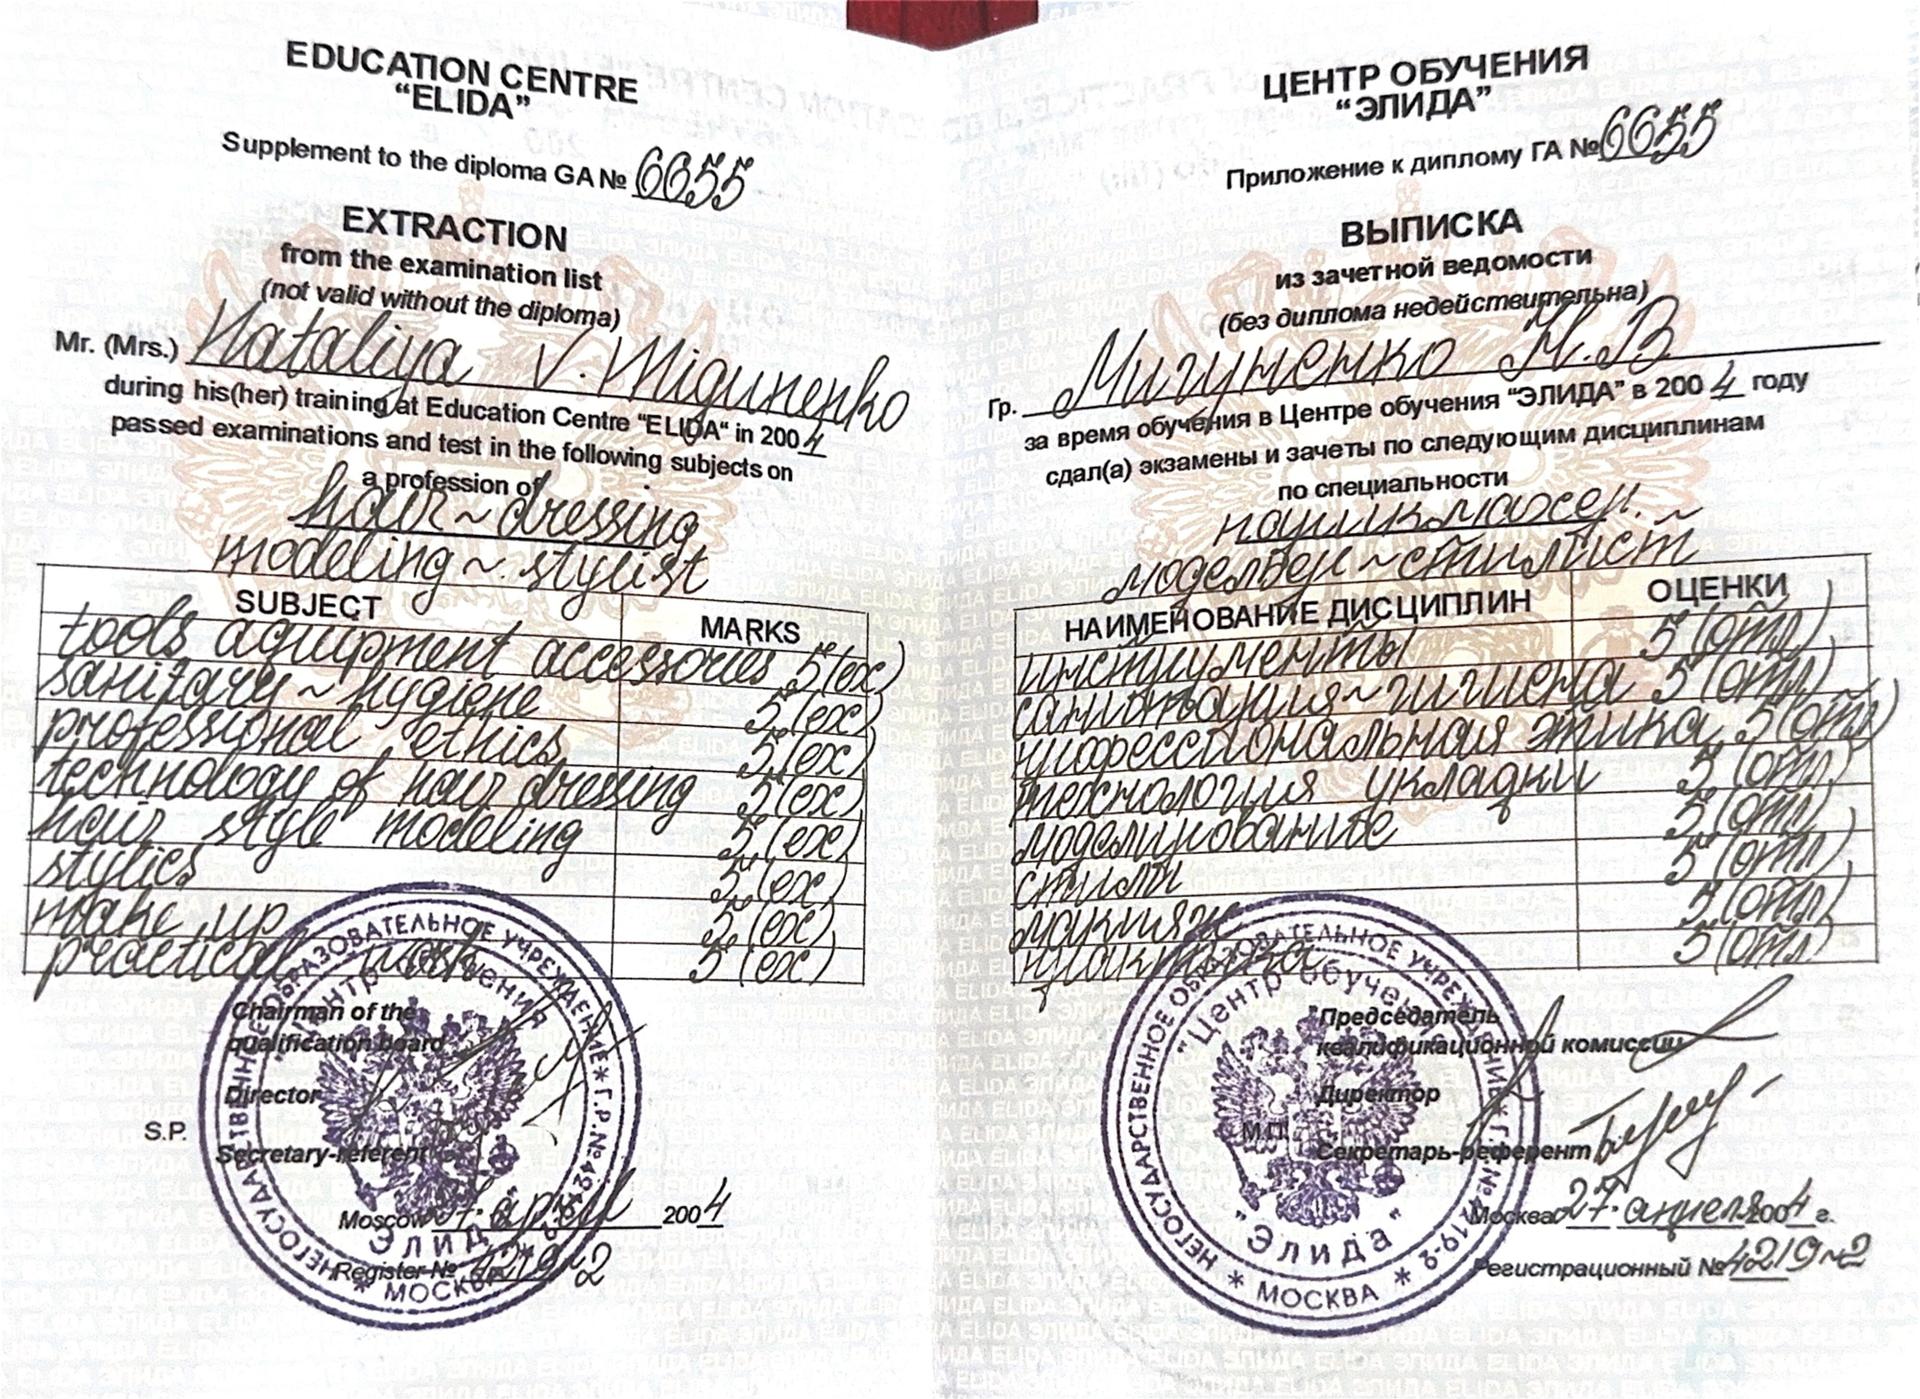 EDUCATION CENTRE
“ELIDA”
Supplement to the diploma GA № 6655
EXTRACTION
from the examination list
(not valid without the diploma)
Mr. (Mrs.) Nataliya V. Migunenko
during his(her) training at Education Centre “ELIDA“ in 2004
passed examinations and test in the following subjects on
a profession of
hair~dressing
modeling~stylist
SUBJECT MARKS
tools aquipment accessories 5(ex)
sanitary~hygiene 5(ex)
professional ethics 5(ex)
technology of hair dressing 5(ex)
hair style modeling 5(ex)
stylics 5(ex)
make up 5(ex)
practical work 5(ex)
Chairman of the
qualification board
Director
S.P.
Secretary-referent
Moscow 2004
Register № 4219~2
ЦЕНТР ОБУЧЕНИЯ
“ЭЛИДА”
Приложение к диплому ГА № 6655
ВЫПИСКА
из зачетной ведомости
(без диплома недействительна)
Гр. Мигуненко Н.В
за время обучения в Центре обучения “ЭЛИДА” в 2004 году
сдал(а) экзамены и зачеты по следующим дисциплинам
по специальности
парикмахер~
модельер~стилист
НАИМЕНОВАНИЕ ДИСЦИПЛИН ОЦЕНКИ
инструменты 5(отл)
санитария~гигиена 5(отл)
профессиональная этика 5(отл)
технология укладки 5(отл)
моделирование 5(отл)
стили 5(отл)
макияж 5(отл)
практика 5(отл)
Председатель
квалификационной комиссии
Директор
М.П.
Секретарь-референт
Москва 27. апреля 2004 г.
Регистрационный № 4219~2
НЕГОСУДАРСТВЕННОЕ ОБРАЗОВАТЕЛЬНОЕ УЧРЕЖДЕНИЕ * МОСКВА *
"Центр обучения
"Элида"